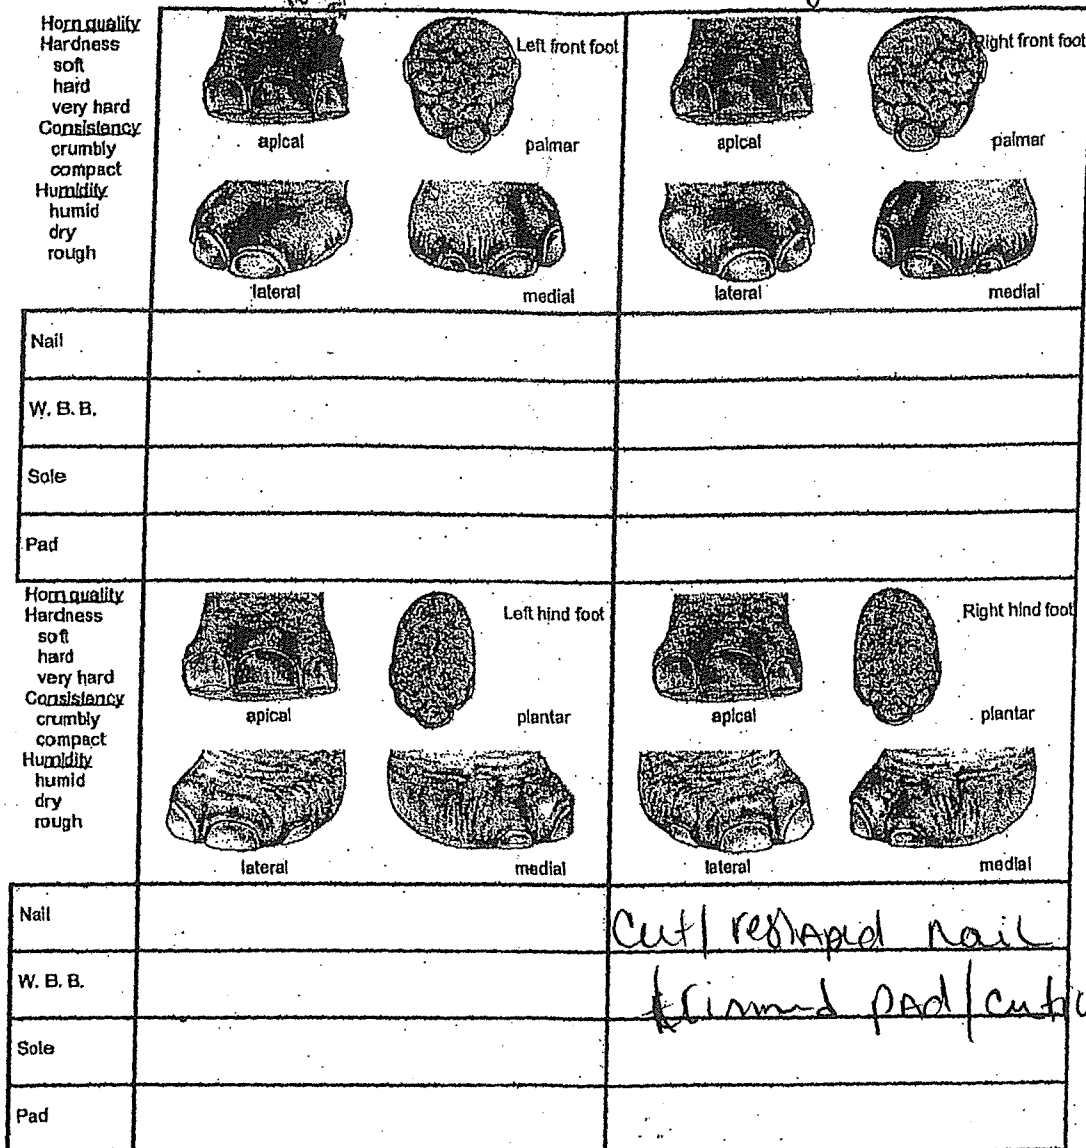 Horn quality
Hardness
soft
hard
very hard
Consistency
crumbly
compact
Humidity
humid
dry
rough
Left front foot
apical
palmar
lateral
medial
Right front foot
apical
palmar
lateral
medial
Nail
W. B. B.
Sole
Pad
Horn quality
Hardness
soft
hard
very hard
Consistency
crumbly
compact
Humidity
humid
dry
rough
Left hind foot
apical
plantar
lateral
medial
Right hind foot
apical
plantar
lateral
medial
Nail
Cut/ reshaped nail
W. B. B.
trimmed pad/
Sole
Pad